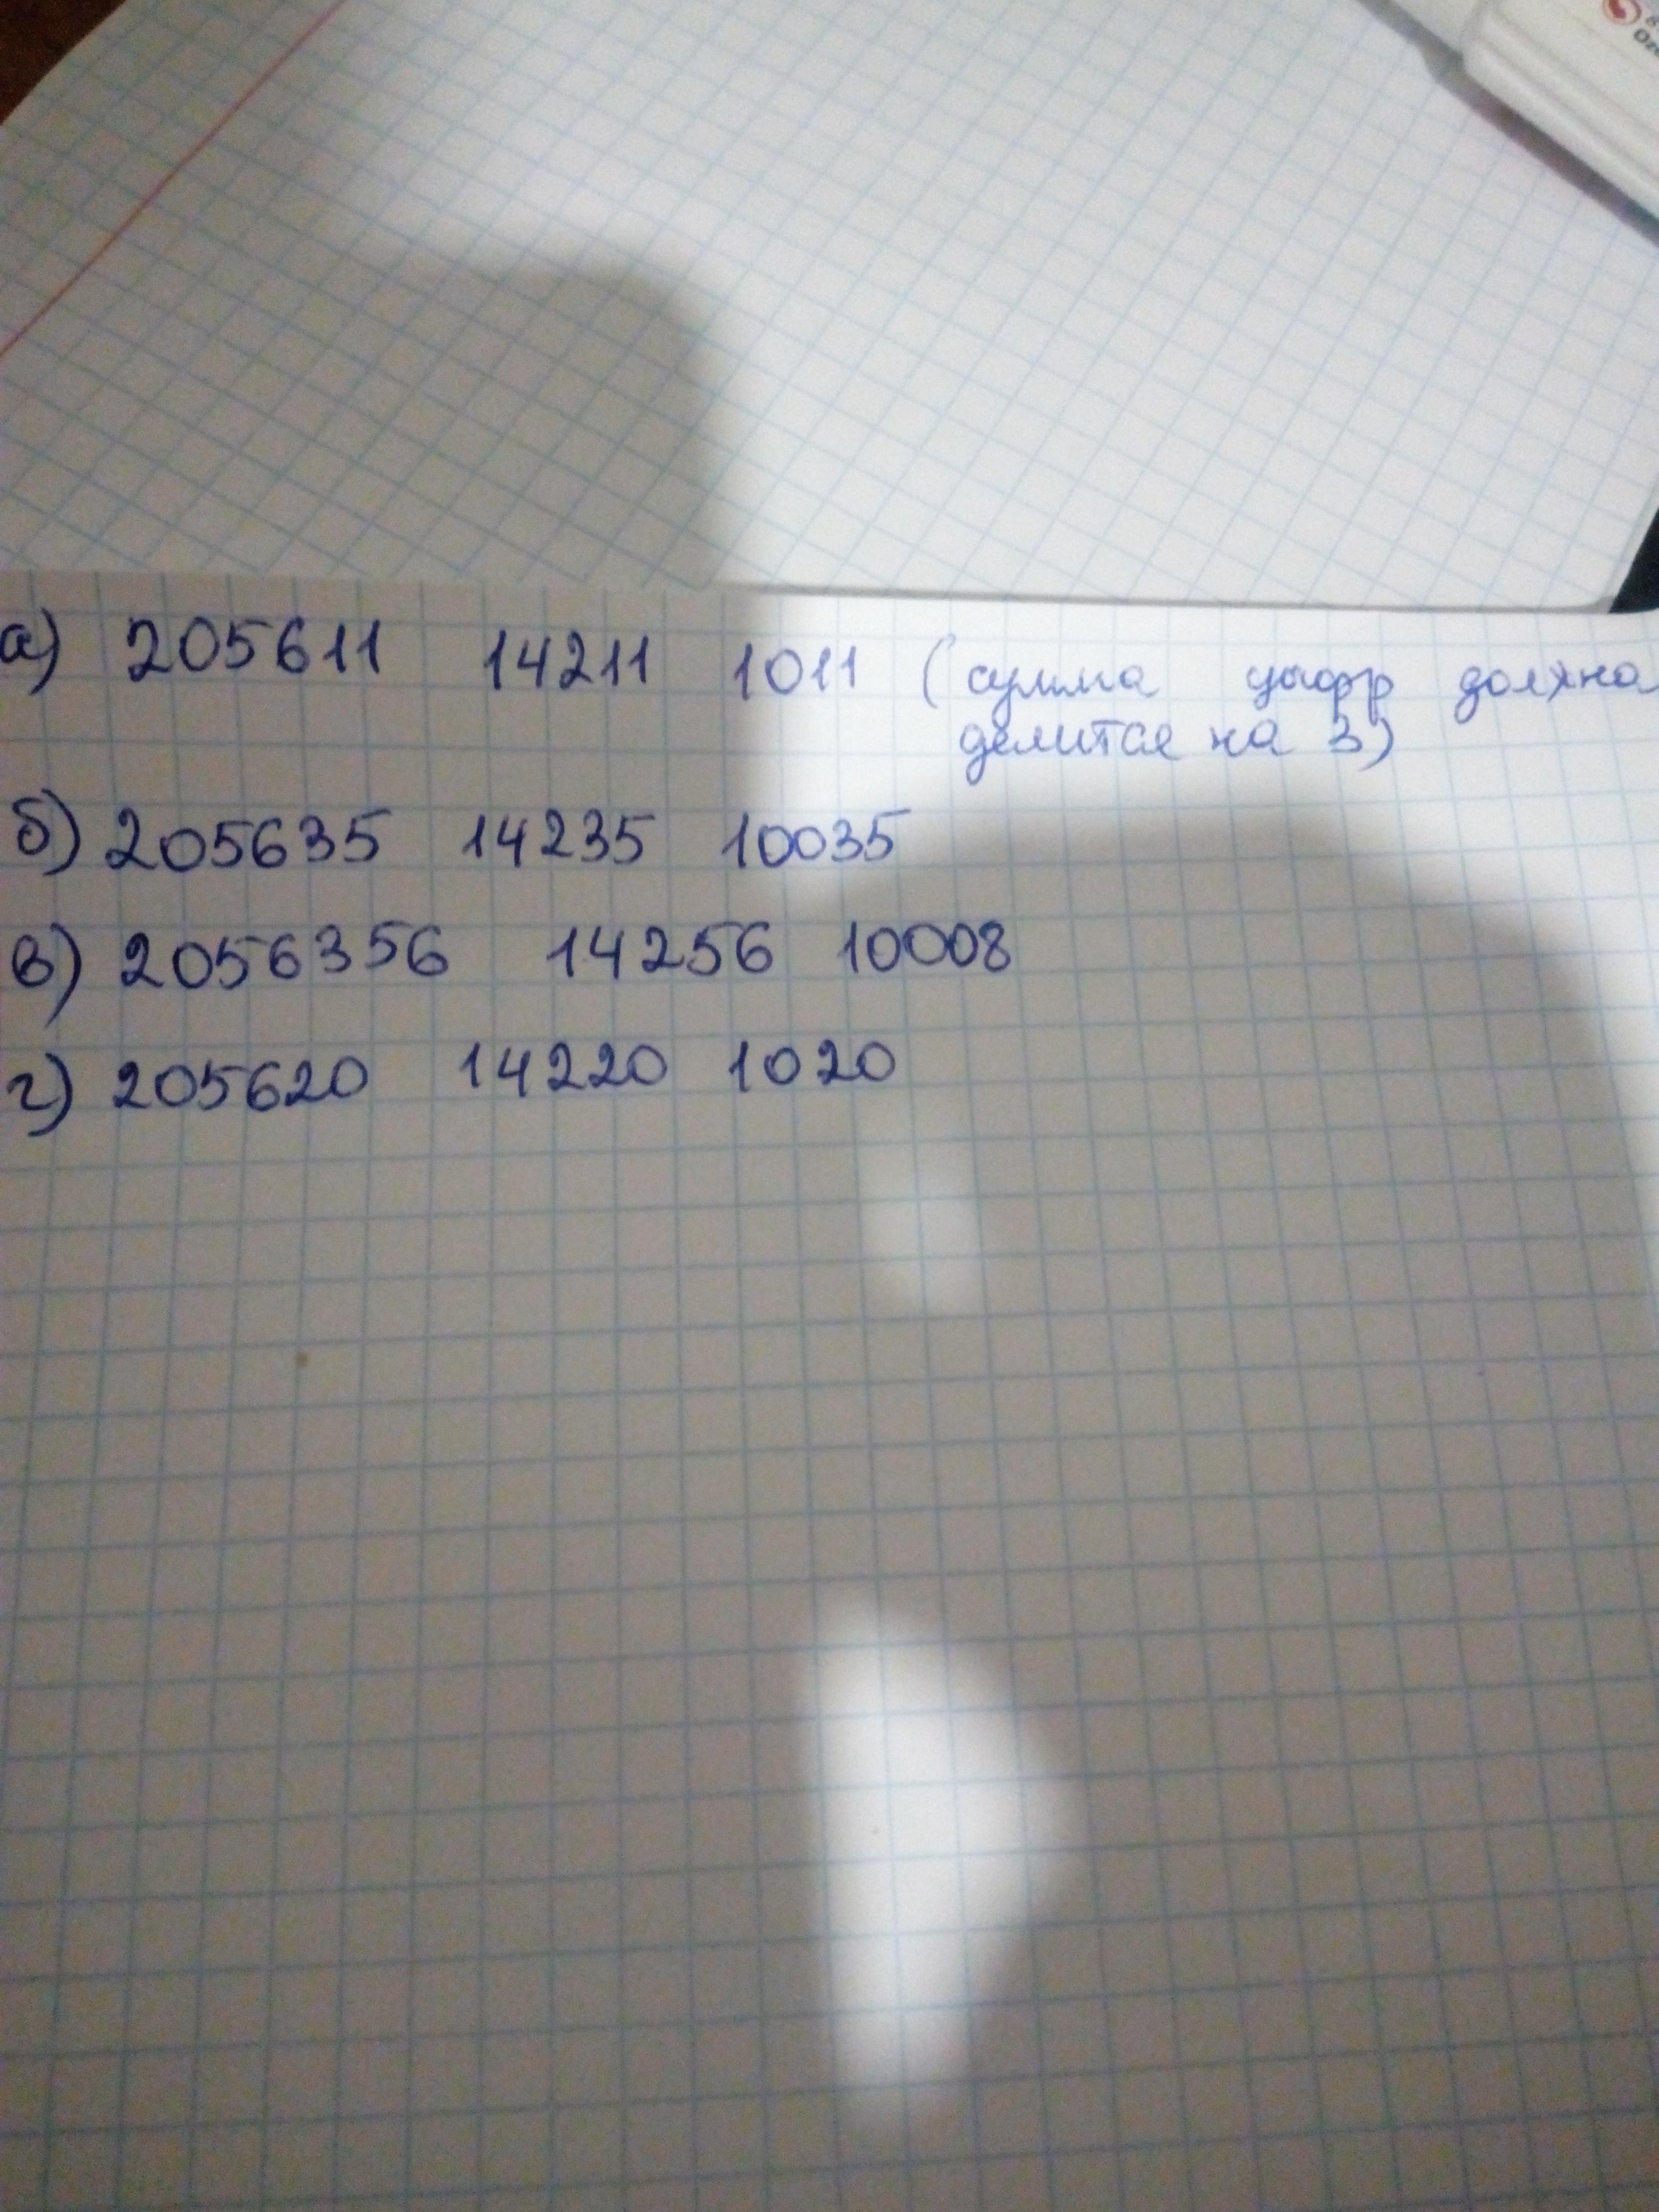 а) 205611 14211 1011 (сумма цифр должна
делится на 3)
б) 205635 14235 10035
в) 2056356 14256 10008
г) 205620 14220 1020